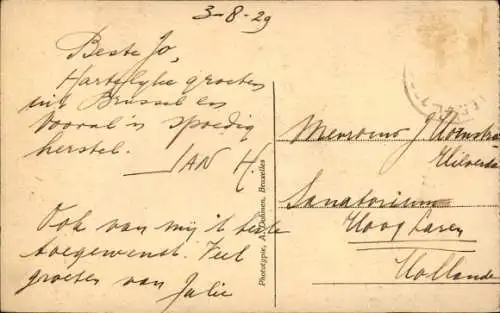 3-8-29
Beste Jo,
Hartelyke groeten
uit Brussel en
vooral 'n spoedig
herstel.
JAN H.
Ook van mij 't beste
toegewenst. Veel
groeten van
Julie
Phototypie, A. Dohmen, Bruxelles
Mevrouw J
Hilvers
Sanatorium
Hoog Laren
Hollande